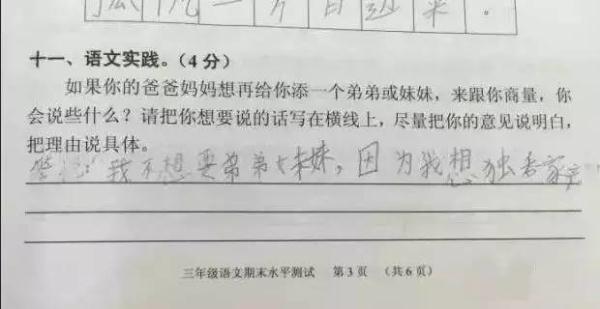 孤帆一片日边来。
十一、语文实践。（4分）
如果你的爸爸妈妈想再给你添一个弟弟或妹妹，来跟你商量，你
会说些什么？请把你想要说的话写在横线上，尽量把你的意见说明白，
把理由说具体。
我不想要弟弟妹妹，因为我想独吞家产
三年级语文期末水平测试 第3页 （共6页）